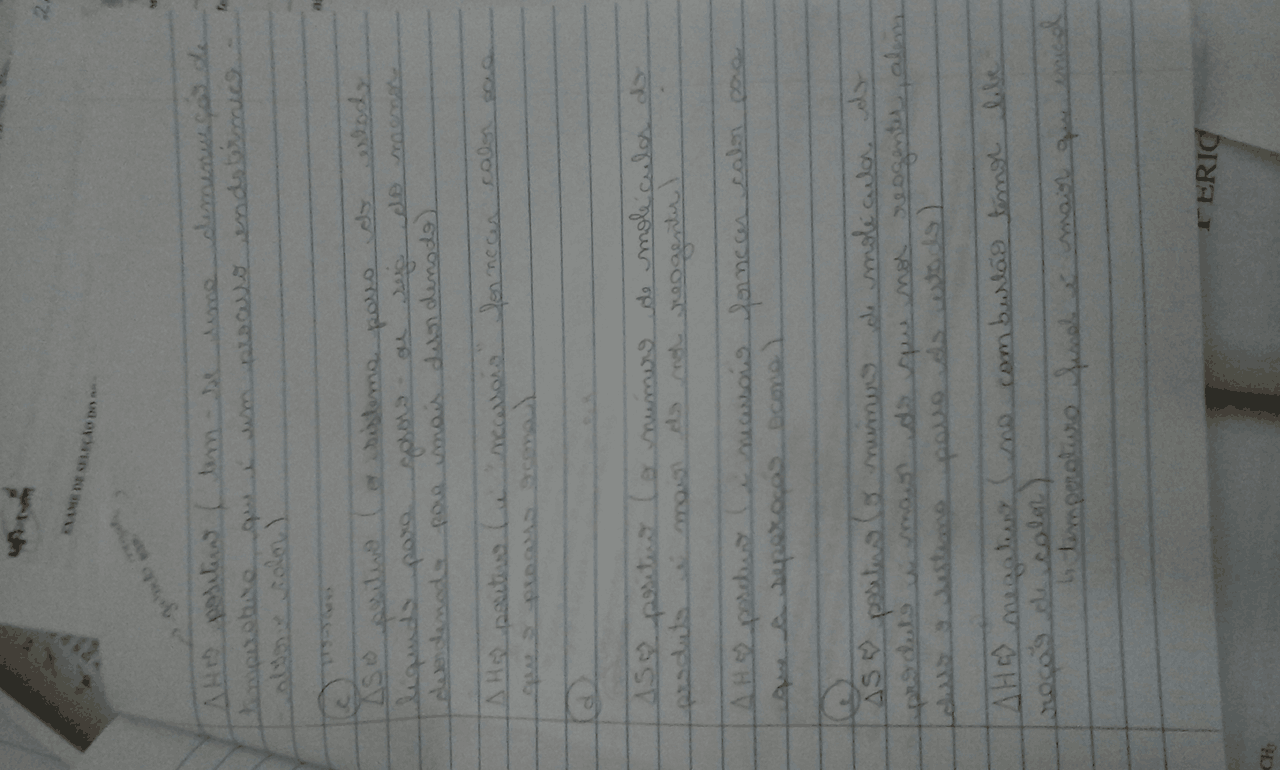 ΔH ⇨ positivo (tem-se uma diminuição de
temperatura que é um processo endotérmico -
absorve calor)
c
ΔS ⇨ positivo (o sistema passa do estado
líquido para gasoso - ou seja do menos
desordenado para mais desordenado)
ΔH ⇨ positivo (é necessário fornecer calor para
que o processo ocorra)
d
ΔS ⇨ positivo (o número de moléculas do
produto é maior do nos reagentes)
ΔH ⇨ positivo (é necessário fornecer calor para
que a separação ocorra)
e
ΔS ⇨ positivo (o número de moléculas do
produto é maior do que nos reagentes, além
disso o sistema passa do estado)
ΔH ⇨ negativo (na combustão temos libe
ração de calor)
↳ temperatura final é maior que inicial
EXAME DE SELEÇÃO DO
PERIO
CH₂